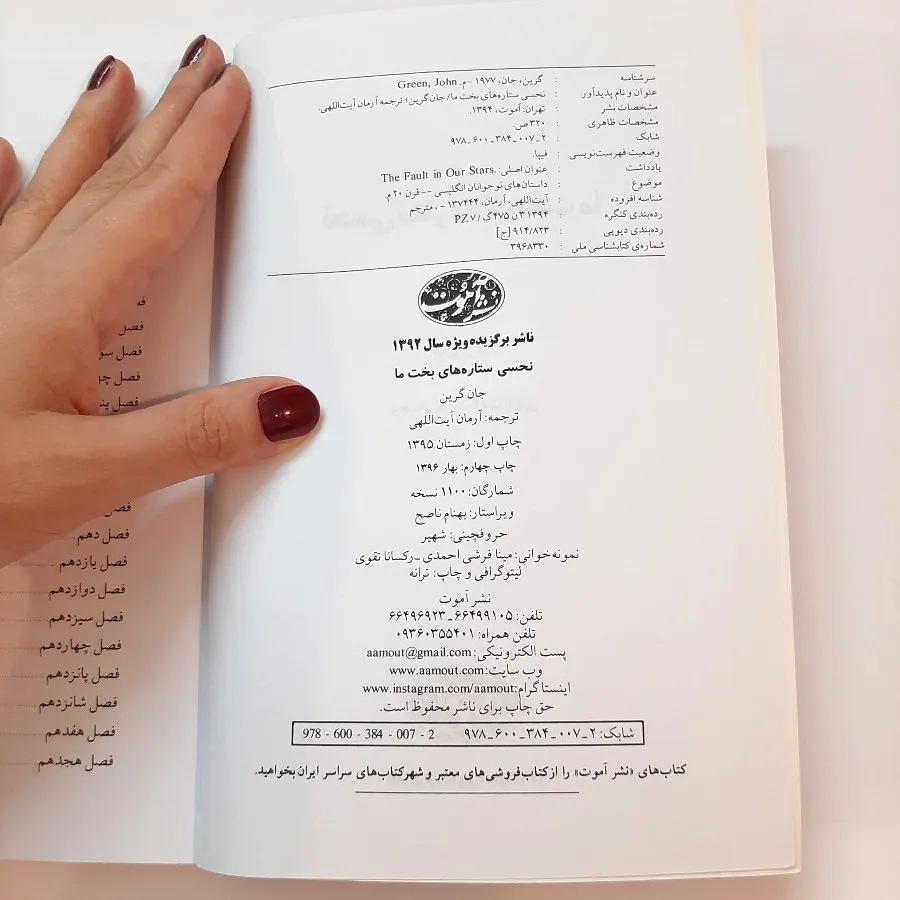 سرشناسه : گرین، جان، ۱۹۷۷ -م. Green, John
عنوان و نام پدیدآور : نحسی ستاره‌های بخت ما/ جان گرین؛ ترجمه آرمان آیت‌اللهی.
مشخصات نشر : تهران: آموت، ۱۳۹۴.
مشخصات ظاهری : ۳۲۰ ص.
شابک : ۹۷۸-۶۰۰-۳۸۴-۰۰۷-۲
وضعیت فهرست‌نویسی : فیپا.
یادداشت : عنوان اصلی: The Fault in Our Stars.
موضوع : داستان‌های نوجوانان انگلیسی -- قرن ۲۰ م.
شناسه افزوده : آیت‌اللهی، آرمان، ۱۳۷۴۴۴ - ، مترجم
رده‌بندی کنگره : ۱۳۹۴ ۳ ن ۴۷۵ گ / PZ ۷
رده‌بندی دیویی : ۹۱۴/۸۲۳ [ج]
شماره‌ی کتابشناسی ملی : ۳۹۶۸۳۳۰
نشر آموت
ناشر برگزیده ویژه سال ۱۳۹۲
نحسی ستاره‌های بخت ما
جان گرین
ترجمه: آرمان آیت‌اللهی
چاپ اول: زمستان ۱۳۹۵
چاپ چهارم: بهار ۱۳۹۶
شمارگان: ۱۱۰۰ نسخه
ویراستار: بهنام ناصح
حروفچینی: شهیر
نمونه‌خوانی: مینا فرشی احمدی - رکسانا تقوی
لیتوگرافی و چاپ: ترانه
نشر آموت
تلفن: ۶۶۴۹۹۱۰۵ - ۶۶۴۹۶۹۲۳
تلفن همراه: ۰۹۳۶۰۳۵۵۴۰۱
پست الکترونیکی: aamout@gmail.com
وب سایت: www.aamout.com
اینستاگرام: www.instagram.com/aamout
حق چاپ برای ناشر محفوظ است.
شابک: ۹۷۸-۶۰۰-۳۸۴-۰۰۷-۲ 978 - 600 - 384 - 007 - 2
کتاب‌های «نشر آموت» را از کتاب‌فروشی‌های معتبر و شهرکتاب‌های سراسر ایران بخواهید.
فصل
فصل
فصل
فصل دهم
فصل یازدهم
فصل دوازدهم
فصل سیزدهم
فصل چهاردهم
فصل پانزدهم
فصل شانزدهم
فصل هفدهم
فصل هجدهم